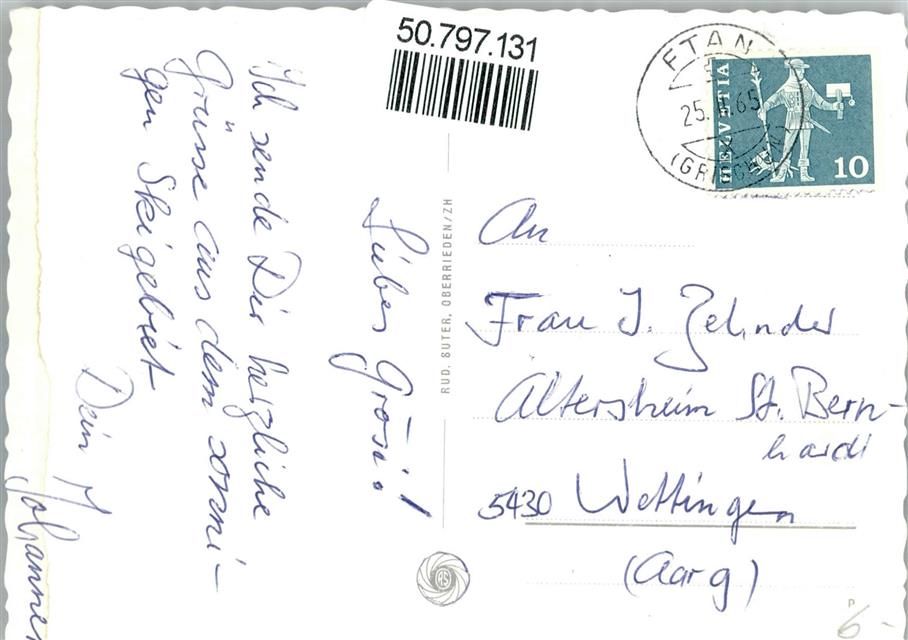 50.797.131
FTAN
25. 65
(GRISCHUN)
HELVETIA
10
Liebes Grosi!
Ich sende Dir herzliche
Grüsse aus dem sonni-
gen Skigebiet
Dein
Johannes
RUD. SUTER, OBERRIEDEN/ZH
RS
An
Frau J. Zehnder
Altersheim St. Bern-
hard
5430 Wettingen
(Aarg)
P
6.-